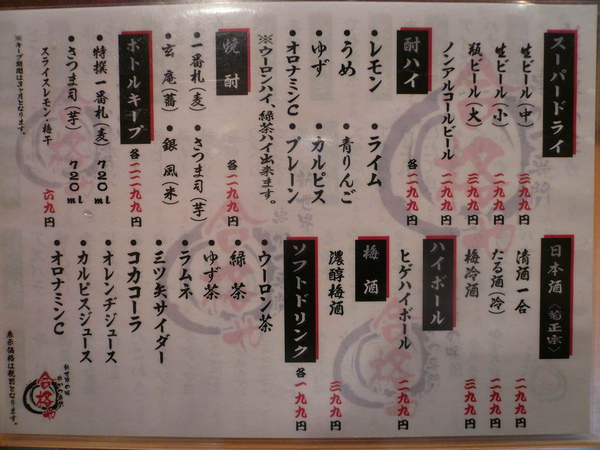 スーパードライ
生ビール(中) 三九九円
生ビール(小) 二九九円
瓶ビール(大) 三九九円
ノンアルコールビール 二九九円
酎ハイ 各二九九円
・レモン
・ライム
・うめ
・青りんご
・ゆず
・カルピス
・オロナミンC
・プレーン
※ウーロンハイ、緑茶ハイ出来ます。
焼酎 各二九九円
・一番札(麦)
・さつま司(芋)
・玄庵(蕎)
・銀風(米)
ボトルキープ 各二一九九円
・特撰一番札(麦) 720ml
・さつま司(芋) 720ml
スライスレモン・梅干 六九円
※キープ期間は3ヶ月となります。
日本酒〈菊正宗〉
清酒一合 二九九円
たる酒(冷) 二九九円
梅冷酒 三九九円
ハイボール
ヒゲハイボール 二九九円
梅酒
濃醇梅酒 三九九円
ソフトドリンク 各一九九円
・ウーロン茶
・緑茶
・ゆず茶
・ラムネ
・三ツ矢サイダー
・コカコーラ
・オレンヂジュース
・カルピスジュース
・オロナミンC
表示価格は税別となります。
新世界の味
合格や